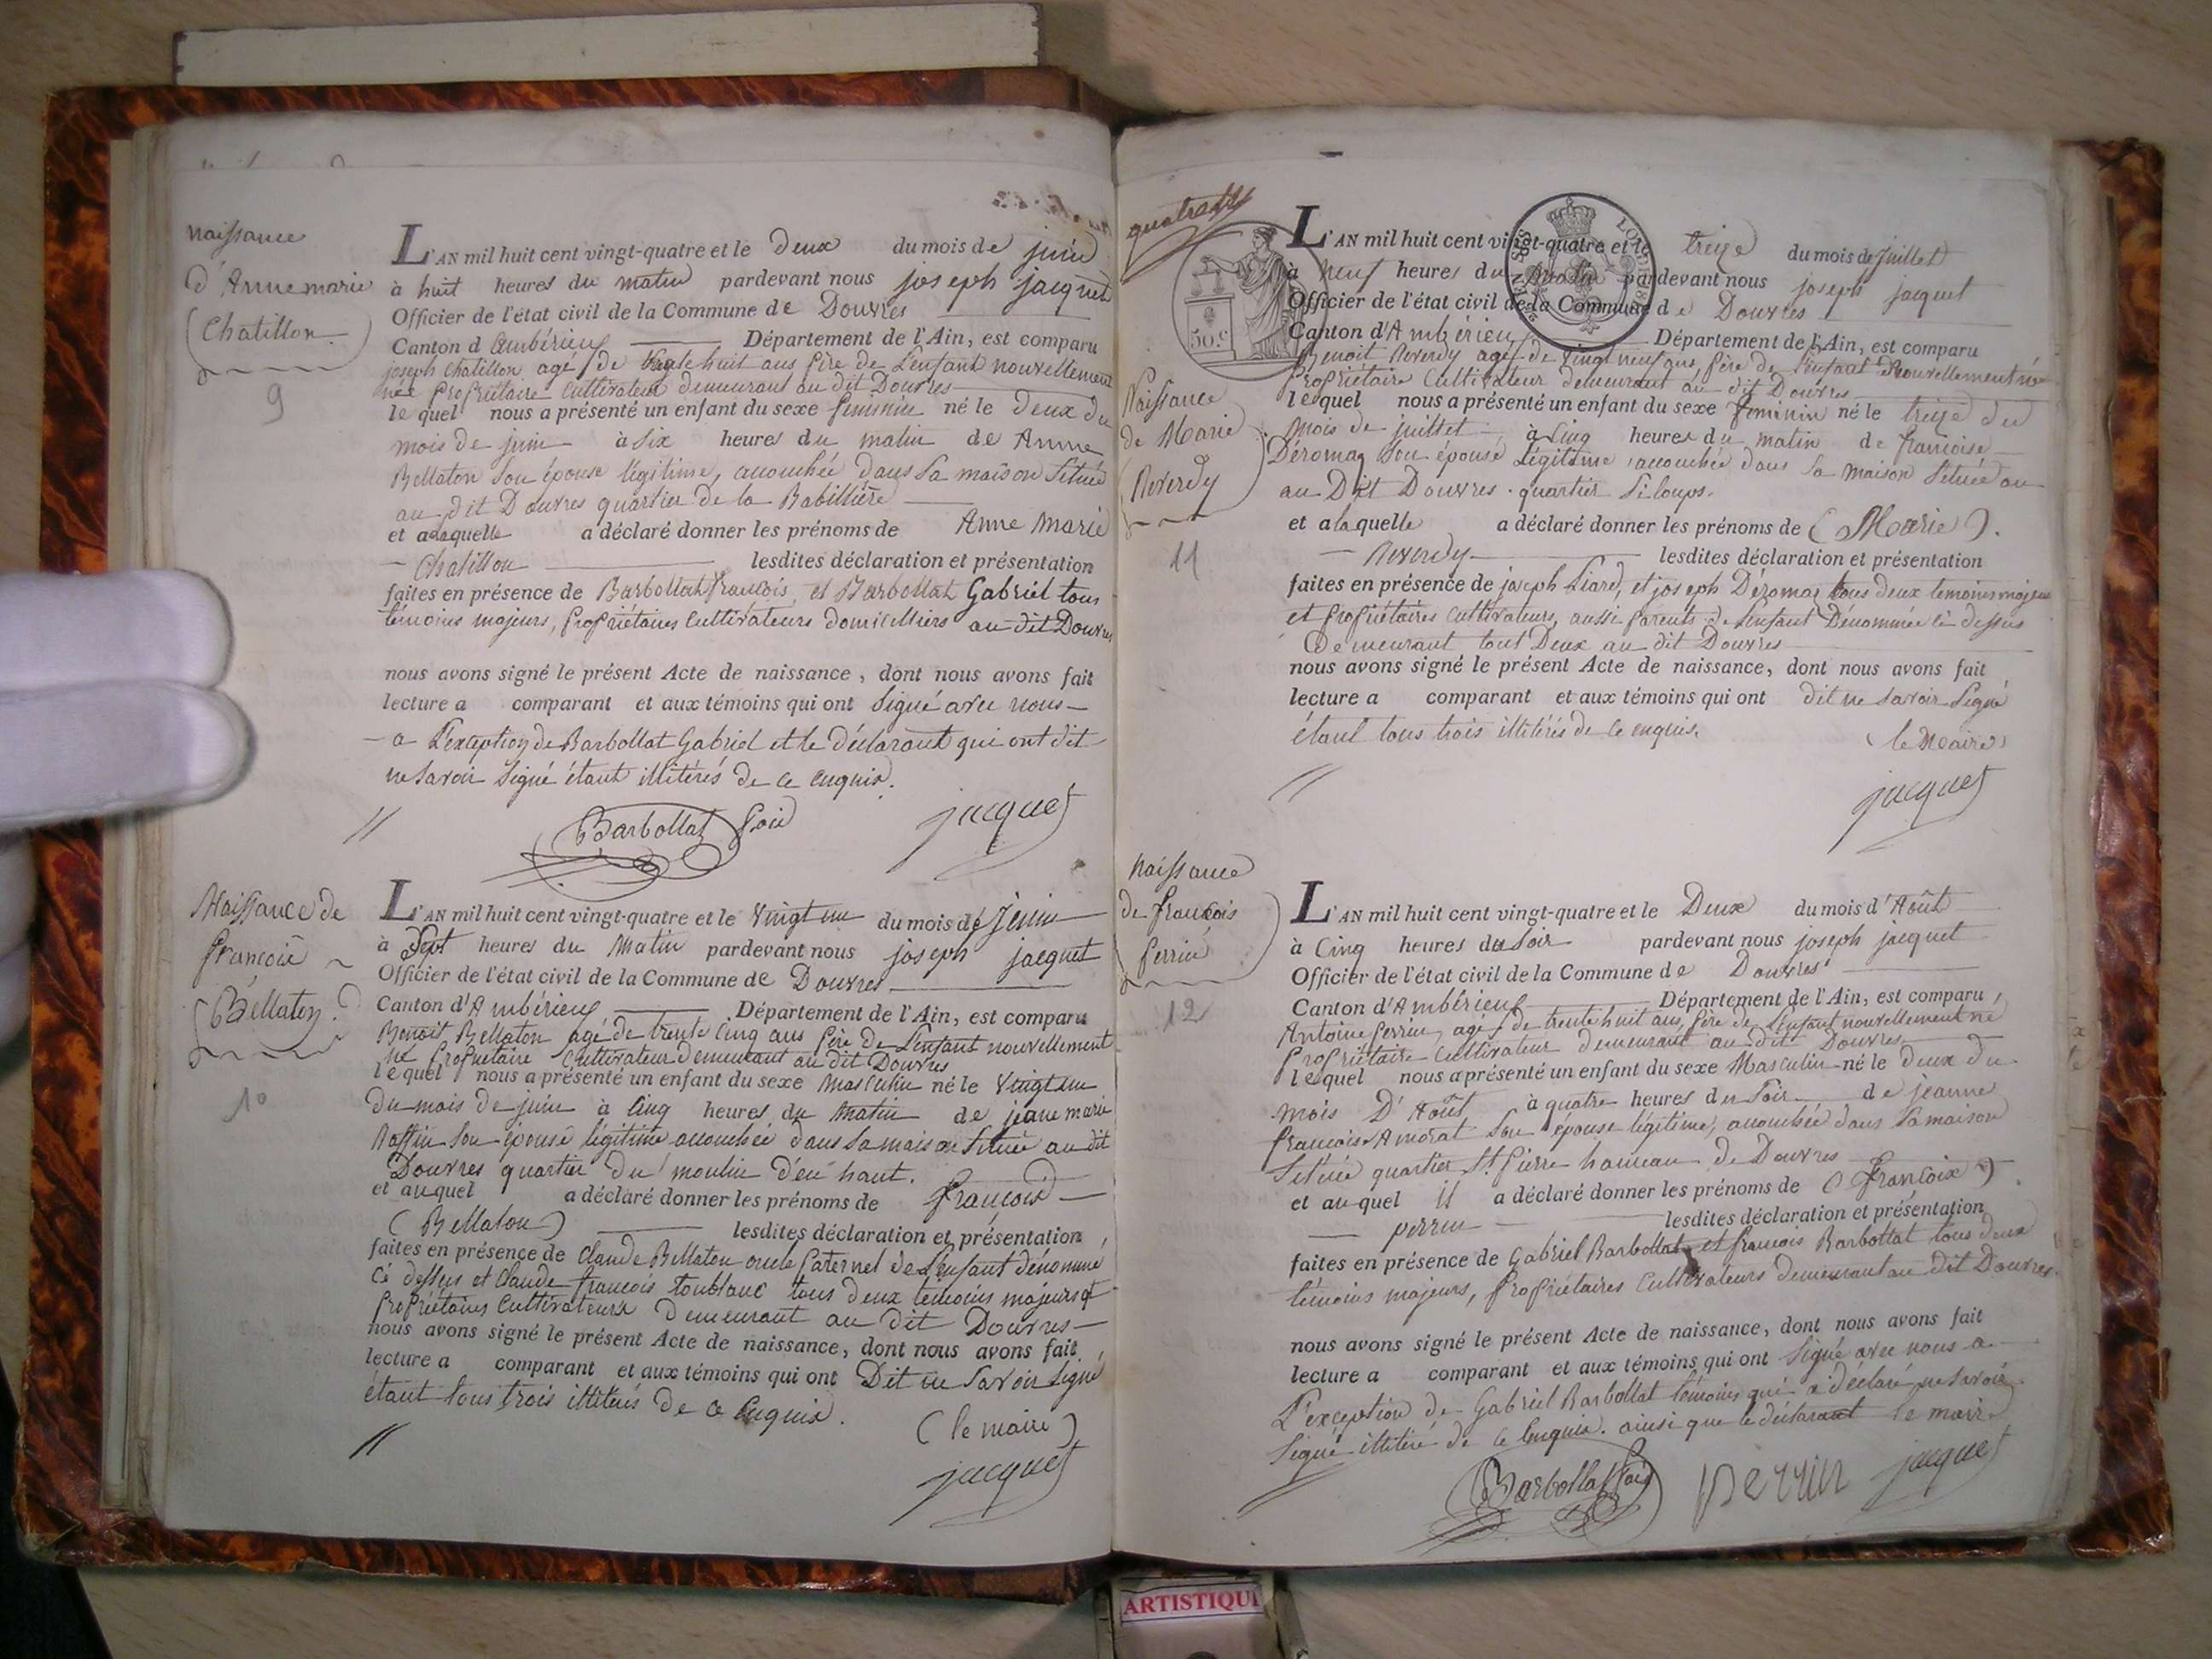 naissance
d'Annemarie
(Chatillon)
9
L'AN mil huit cent vingt-quatre et le deux du mois de juin
à huit heures du matin pardevant nous joseph jacquet
Officier de l'état civil de la Commune de Douvres
Canton d'ambérieux Département de l'Ain, est comparu
joseph Chatillon agé de huit ans père de L'enfant nouvellement
née propriétaire Cultivateur demeurant au dit Douvres
lequel nous a présenté un enfant du sexe feminin né le Deux du
mois de juin à Six heures du matin de Anne
Bellaton Son épouse légitime, accouchée dans Sa maison Située
au dit Douvres quartier de la Babillière
et alaquelle a déclaré donner les prénoms de Anne Marie
Chatillon lesdites déclaration et présentation
faites en présence de Barbollat francois, et Barbollat Gabriel tous
témoins majeurs, propriétaires Cultivateurs domicilliers au dit Douvres
nous avons signé le présent Acte de naissance, dont nous avons fait
lecture a comparant et aux témoins qui ont Signé avec nous
a L'exception de Barbollat Gabriel et le déclarant qui ont dit
ne Savoir Signé étant illitérés de ce enquis.
Barbollat jacquet
Naissance de
francois
(Bellaton)
10
L'AN mil huit cent vingt-quatre et le Vingt un du mois de Juin
à Sept heures du Matin pardevant nous joseph jacquet
Officier de l'état civil de la Commune de Douvres
Canton d'Ambérieux Département de l'Ain, est comparu
Benoit Bellaton agé de trente Cinq ans père de L'enfant nouvellement
né propriétaire Cultivateur demeurant au dit Douvres
lequel nous a présenté un enfant du sexe Masculin né le Vingt un
du mois de juin à Cinq heures du Matin de jeane marie
Son épouse légitime accouchée dans Sa maison Située au dit
Douvres quartier du moulin d'en haut.
et auquel a déclaré donner les prénoms de francois
(Bellaton) lesdites déclaration et présentation
faites en présence de Claude Bellaton oncle paternel de L'enfant dénommé
Cé dessus et Claude francois toublanc tous deux témoins majeurs et
propriétaires Cultivateurs Demeurant au dit Douvres
nous avons signé le présent Acte de naissance, dont nous avons fait
lecture a comparant et aux témoins qui ont Dit ne Savoir Signé
étant tous trois illitérés de ce Enquis.
(le maire)
jacquet
50.c
Naissance
de Marie
(Reverdy)
11
L'AN mil huit cent vingt-quatre et le treize du mois de juillet
à neuf heures du matin pardevant nous joseph jacquet
Officier de l'état civil de la Commune de Douvres
Canton d'Ambérieux Département de l'Ain, est comparu
Benoit Reverdy agé de vingt neuf ans, père de L'enfant nouvellement né
propriétaire Cultivateur demeurant au dit Douvres
lequel nous a présenté un enfant du sexe feminin né le treize du
mois de juillet à Cinq heures du matin de françoise
Déromaz Son épouse Légitime accouchée dans Sa maison Située au
au Dit Douvres quartier
et alaquelle a déclaré donner les prénoms de (Marie).
Reverdy lesdites déclaration et présentation
faites en présence de joseph Liard, et joseph Déromaz tous deux temoins majeurs
et propriétaires cultivateurs, aussi parents de L'enfant Dénommée ci dessus
Demeurant tout Deux au dit Douvres
nous avons signé le présent Acte de naissance, dont nous avons fait
lecture a comparant et aux témoins qui ont dit ne Savoir Signé
étant tous trois illitérés de ce enquis.
(le Maire)
jacquet
naissance
de francois
perrin
12
L'AN mil huit cent vingt-quatre et le Deux du mois d'Août
à Cinq heures du Soir pardevant nous joseph jacquet
Officier de l'état civil de la Commune de Douvres
Canton d'Ambérieux Département de l'Ain, est comparu
Antoine perrin, agé de trente huit ans, père de L'enfant nouvellement né
propriétaire Cultivateur demeurant au dit Douvres
lequel nous a présenté un enfant du sexe Masculin né le Deux du
mois D'Août à quatre heures du Soir de jeanne
francoise Amorat Son épouse légitime, accouchée dans Sa maison
Située quartier St. pierre hameau de Douvres
et auquel il a déclaré donner les prénoms de (francois)
perrin lesdites déclaration et présentation
faites en présence de Gabriel Barbollat et francois Barbollat tous deux
témoins majeurs, propriétaires Cultivateurs demeurant au dit Douvres
nous avons signé le présent Acte de naissance, dont nous avons fait
lecture a comparant et aux témoins qui ont Signé avec nous a
L'exception de Gabriel Barbollat témoins qui a déclaré ne Savoir
Signé illitéré de ce Enquis. ainsi que le déclarant le maire
Barbollat perrin jacquet
ARTISTIQU